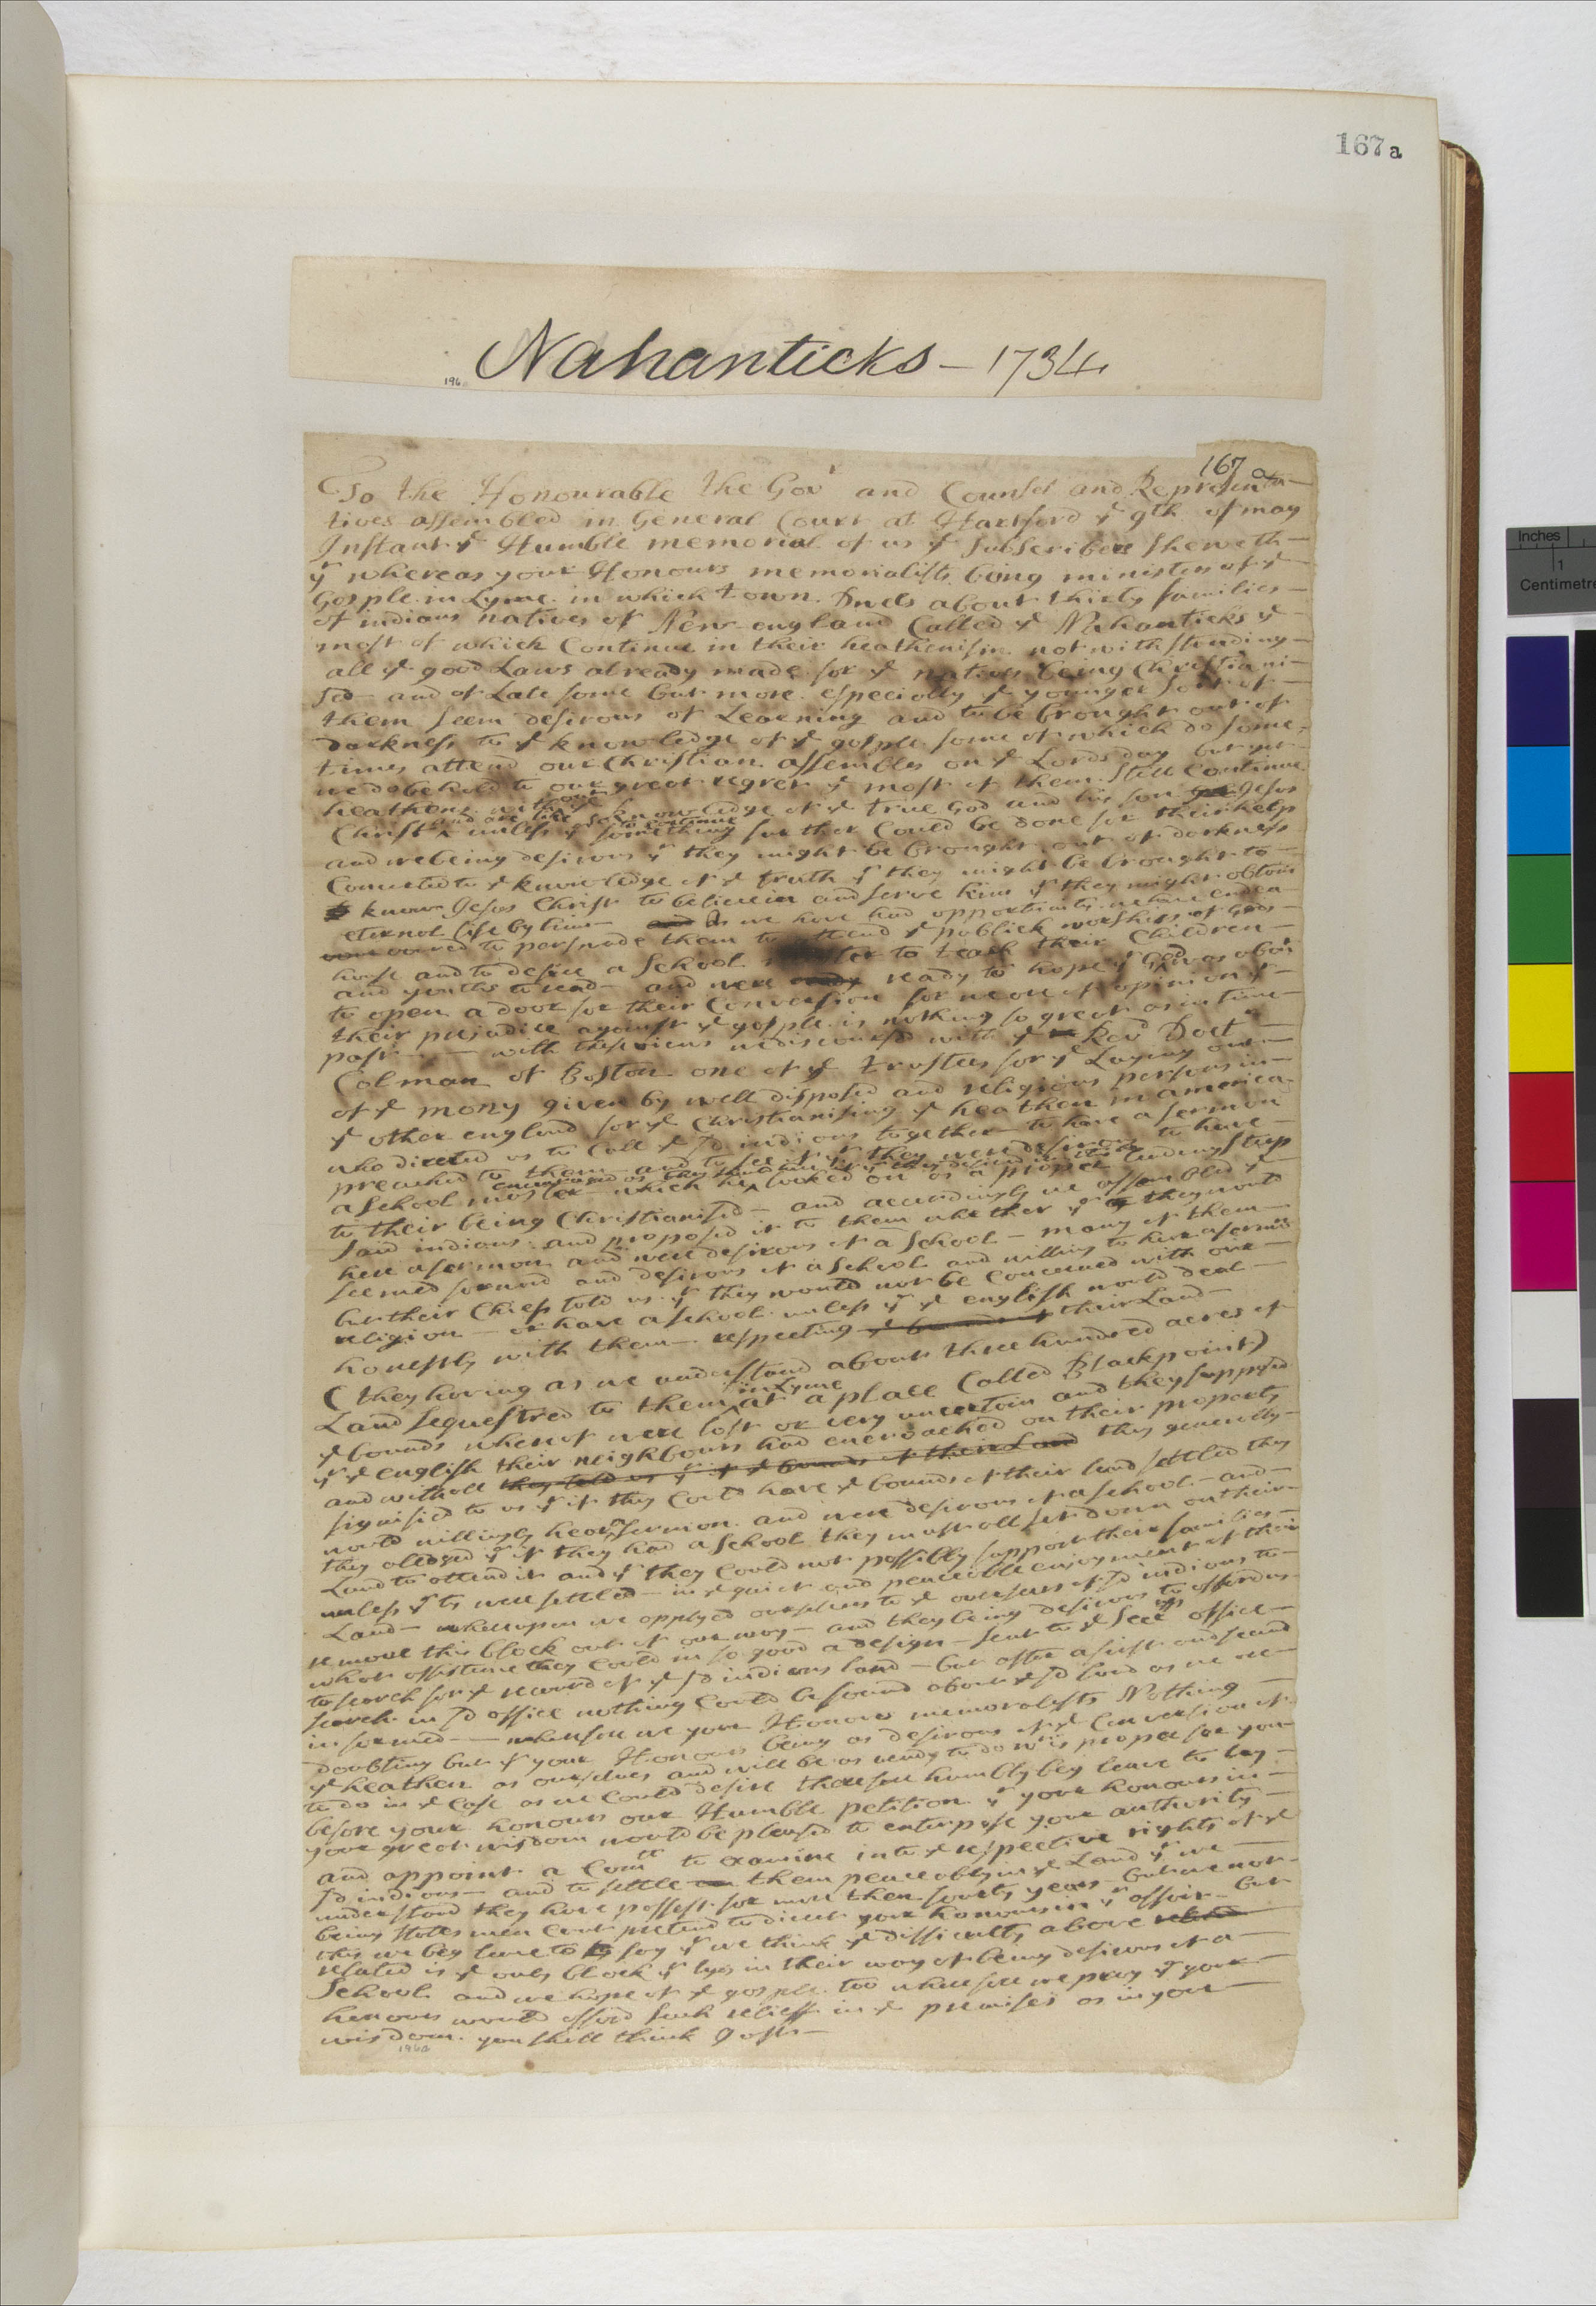 167 a
Nahanticks – 1734
196
167 a
To the Honourable the Govr and Counsel and Representa-
tives assembled in General Court at Hartford ye 9th of may
Instant ye Humble memorial of us ye Subscribers sheweth–
yt whereas your Honours memorialists being ministers of ye–
Gosple in Lyme. in which town. Dwels about thirty families–
of indians natives of New-england Called ye Nahanticks ye–
most of which Continue in their heathenism. notwithstanding–
all ye good Laws already made for ye natives being Christiani–
sed– and of Late some but more. especially ye younger sort of–
them seem desirous of Learning and to be brought out of
darkness to ye knowledge of ye gosple some of which do some-
times attend our Christian assembles on ye Lords day but yet–
we do behold to our great regret yt most of them Still Continue
heathens without ye knowledge of ye true God and his son Jesus
and are like so to continue
Christ ^ unless yt something further Could be done for their help
and we being desirous yt they might be brought out of darkness
Converted to ye knowledge of ye truth yt they might be brought to–
know Jesus Christ to believe in and serve him yt they might obtain
eternal life by him– and As we have had opportunity. we have endea–
voured to perswade them to attend ye publick worship of Gods–
house and to desire a School master to teach their Children–
and youths to read– and were ready ready to hope yt God was about
to open a door for their Conversion for we are of opinion yt–
their prejudice against ye gosple. is nothing so great as in time–
past– – with these views we discoursd with ye Revd Doctr–
Colman of Boston one of ye trustees for ye Laying out–
of ye mony given by well disposed and religious persons in–
ye other england for ye Christianising ye heathen in america.
who directed us to Call ye sd indians together– to have a sermon
preached to them– and to see if yt they were desirous to have–
a School master– which he ^ looked on as a proper leading step
to their being Christianised– and accordingly we assembled ye–
said indians. and proposed it to them whether yt they would
hear a sermon and were desirous of a School– many of them–
seemed forward and desirous of a School and willing to hear a sermon
but their Chiefs told us yt they would not be Concerned with our–
religion– or have a School unless yt ye english would deal–
honestly with them– respecting ye bounds of their Land–
(they having as we understand about three hundred acres of
in Lyme
Land sequestred to them ^ at a place Called Blackpoint)
ye bounds whereof were lost or very uncertain and they supposed
yt ye english their neighbours had encroached on their property
and withall they told us yt if ye bounds of their Land they generally–
signified to us yt if they Could have ye bounds of their land settled they
would willingly hear a Sermon. and were desirous of a School– and–
they alledged yt if they had a School they must all set down on their–
Land to attend it and yt they Could not possibly support their families–
unless yt ts were settled– in ye quiet and peaceable enjoyment of their
Land– whereupon we applyed ourselves to ye overseers of sd indians to–
remove this block out of our way– and they being desirous to afford us–
what assistance they Could in so good a design– sent to ye Secrys office–
to search for ye record of ye sd indians land– but after a first and second
search in sd office nothing Could be found about ye sd land as we are–
informed– – wherefore we your Honours memorialists Nothing
doubting but yt your Honours being as desirous of ye Conversion of
ye heathen as ourselves and will be as ready to do wt is proper for you–
to do in ye Case as we Could desire therefore humbly beg leave to lay–
before your honours our Humble petition. yt your honours in–
your great wisdom would be pleased to enterpose your authority–
and appoint a Comtt to examine into ye respective rights of ye
sd indians– and to settle them peaceably in ye Land yt we
understand they have possest for more then fourty years– but we not–
being States men Cant pretend to direct your honours in yt affair– but
this we beg leave to say yt we think ye difficulty above
related is ye only block yt lys in their way of being desirous of a–
School and we hope of ye gosple too wherefore we pray yt your–
honours would afford such relieff in ye premises as in your–
wisdom. you shall think Just–
196a
Inches
1
Centimetre